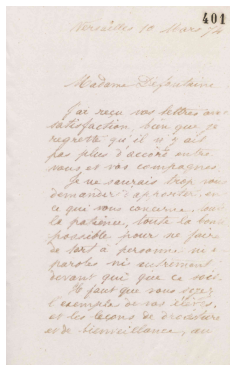 401
Versailles 10 Mars 74
Madame Defontaine
J'ai reçu vos lettres avec
satisfaction, bien que je
regrette qu'il n'y ait
pas plus d'accord entre
vous et vos compagnes.
Je ne saurais trop vous
demander d'apporter, en
ce qui vous concerne, toute
la patience, toute la bonté
possible pour ne faire
de tort à personne ni en
paroles ni autrement
devant qui que ce soit.
Il faut que vous soyez
l'exemple de vos élèves,
et les leçons de droiture
et de bienveillance, au